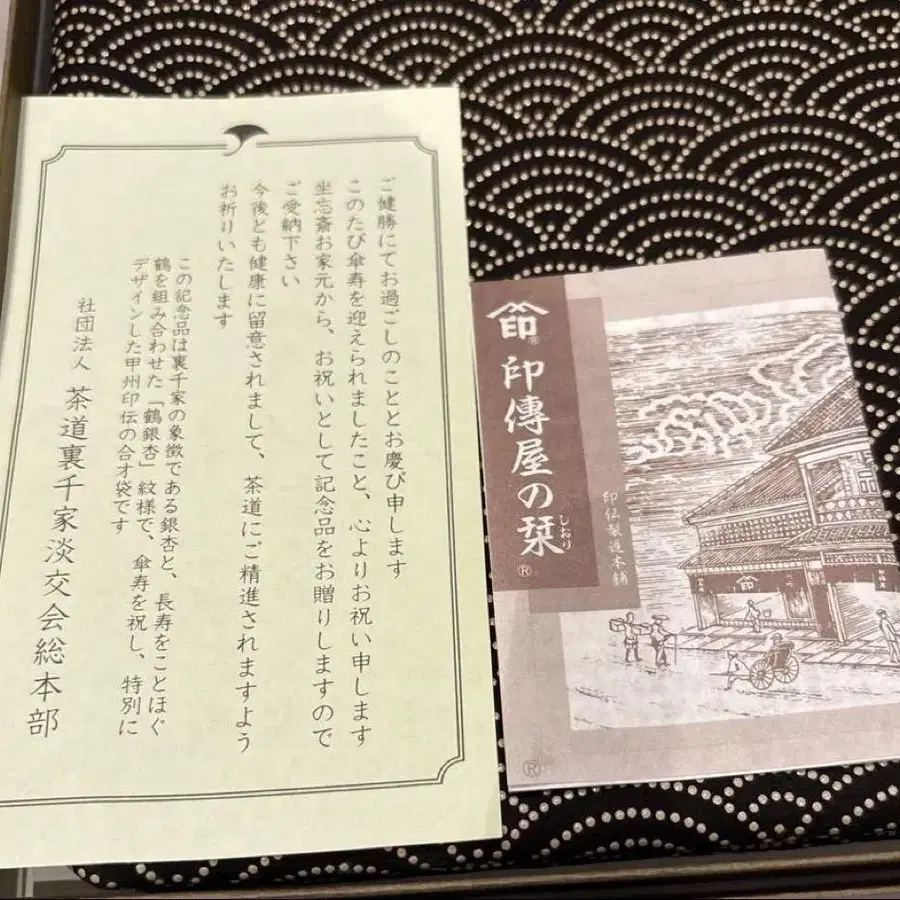 ご健勝にてお過ごしのこととお慶び申します
このたび傘寿を迎えられましたこと、心よりお祝い申します
坐忘斎お家元から、お祝いとして記念品をお贈りしますので
ご受納下さい
今後とも健康に留意されまして、茶道にご精進されますよう
お祈りいたします
この記念品は裏千家の象徴である銀杏と、長寿をことほぐ
鶴を組み合わせた「鶴銀杏」紋様で、傘寿を祝し、特別に
デザインした甲州印伝の合才袋です
社団法人 茶道裏千家淡交会総本部
印
印傳屋の栞
しおり
®
印伝製造本舗
印
®